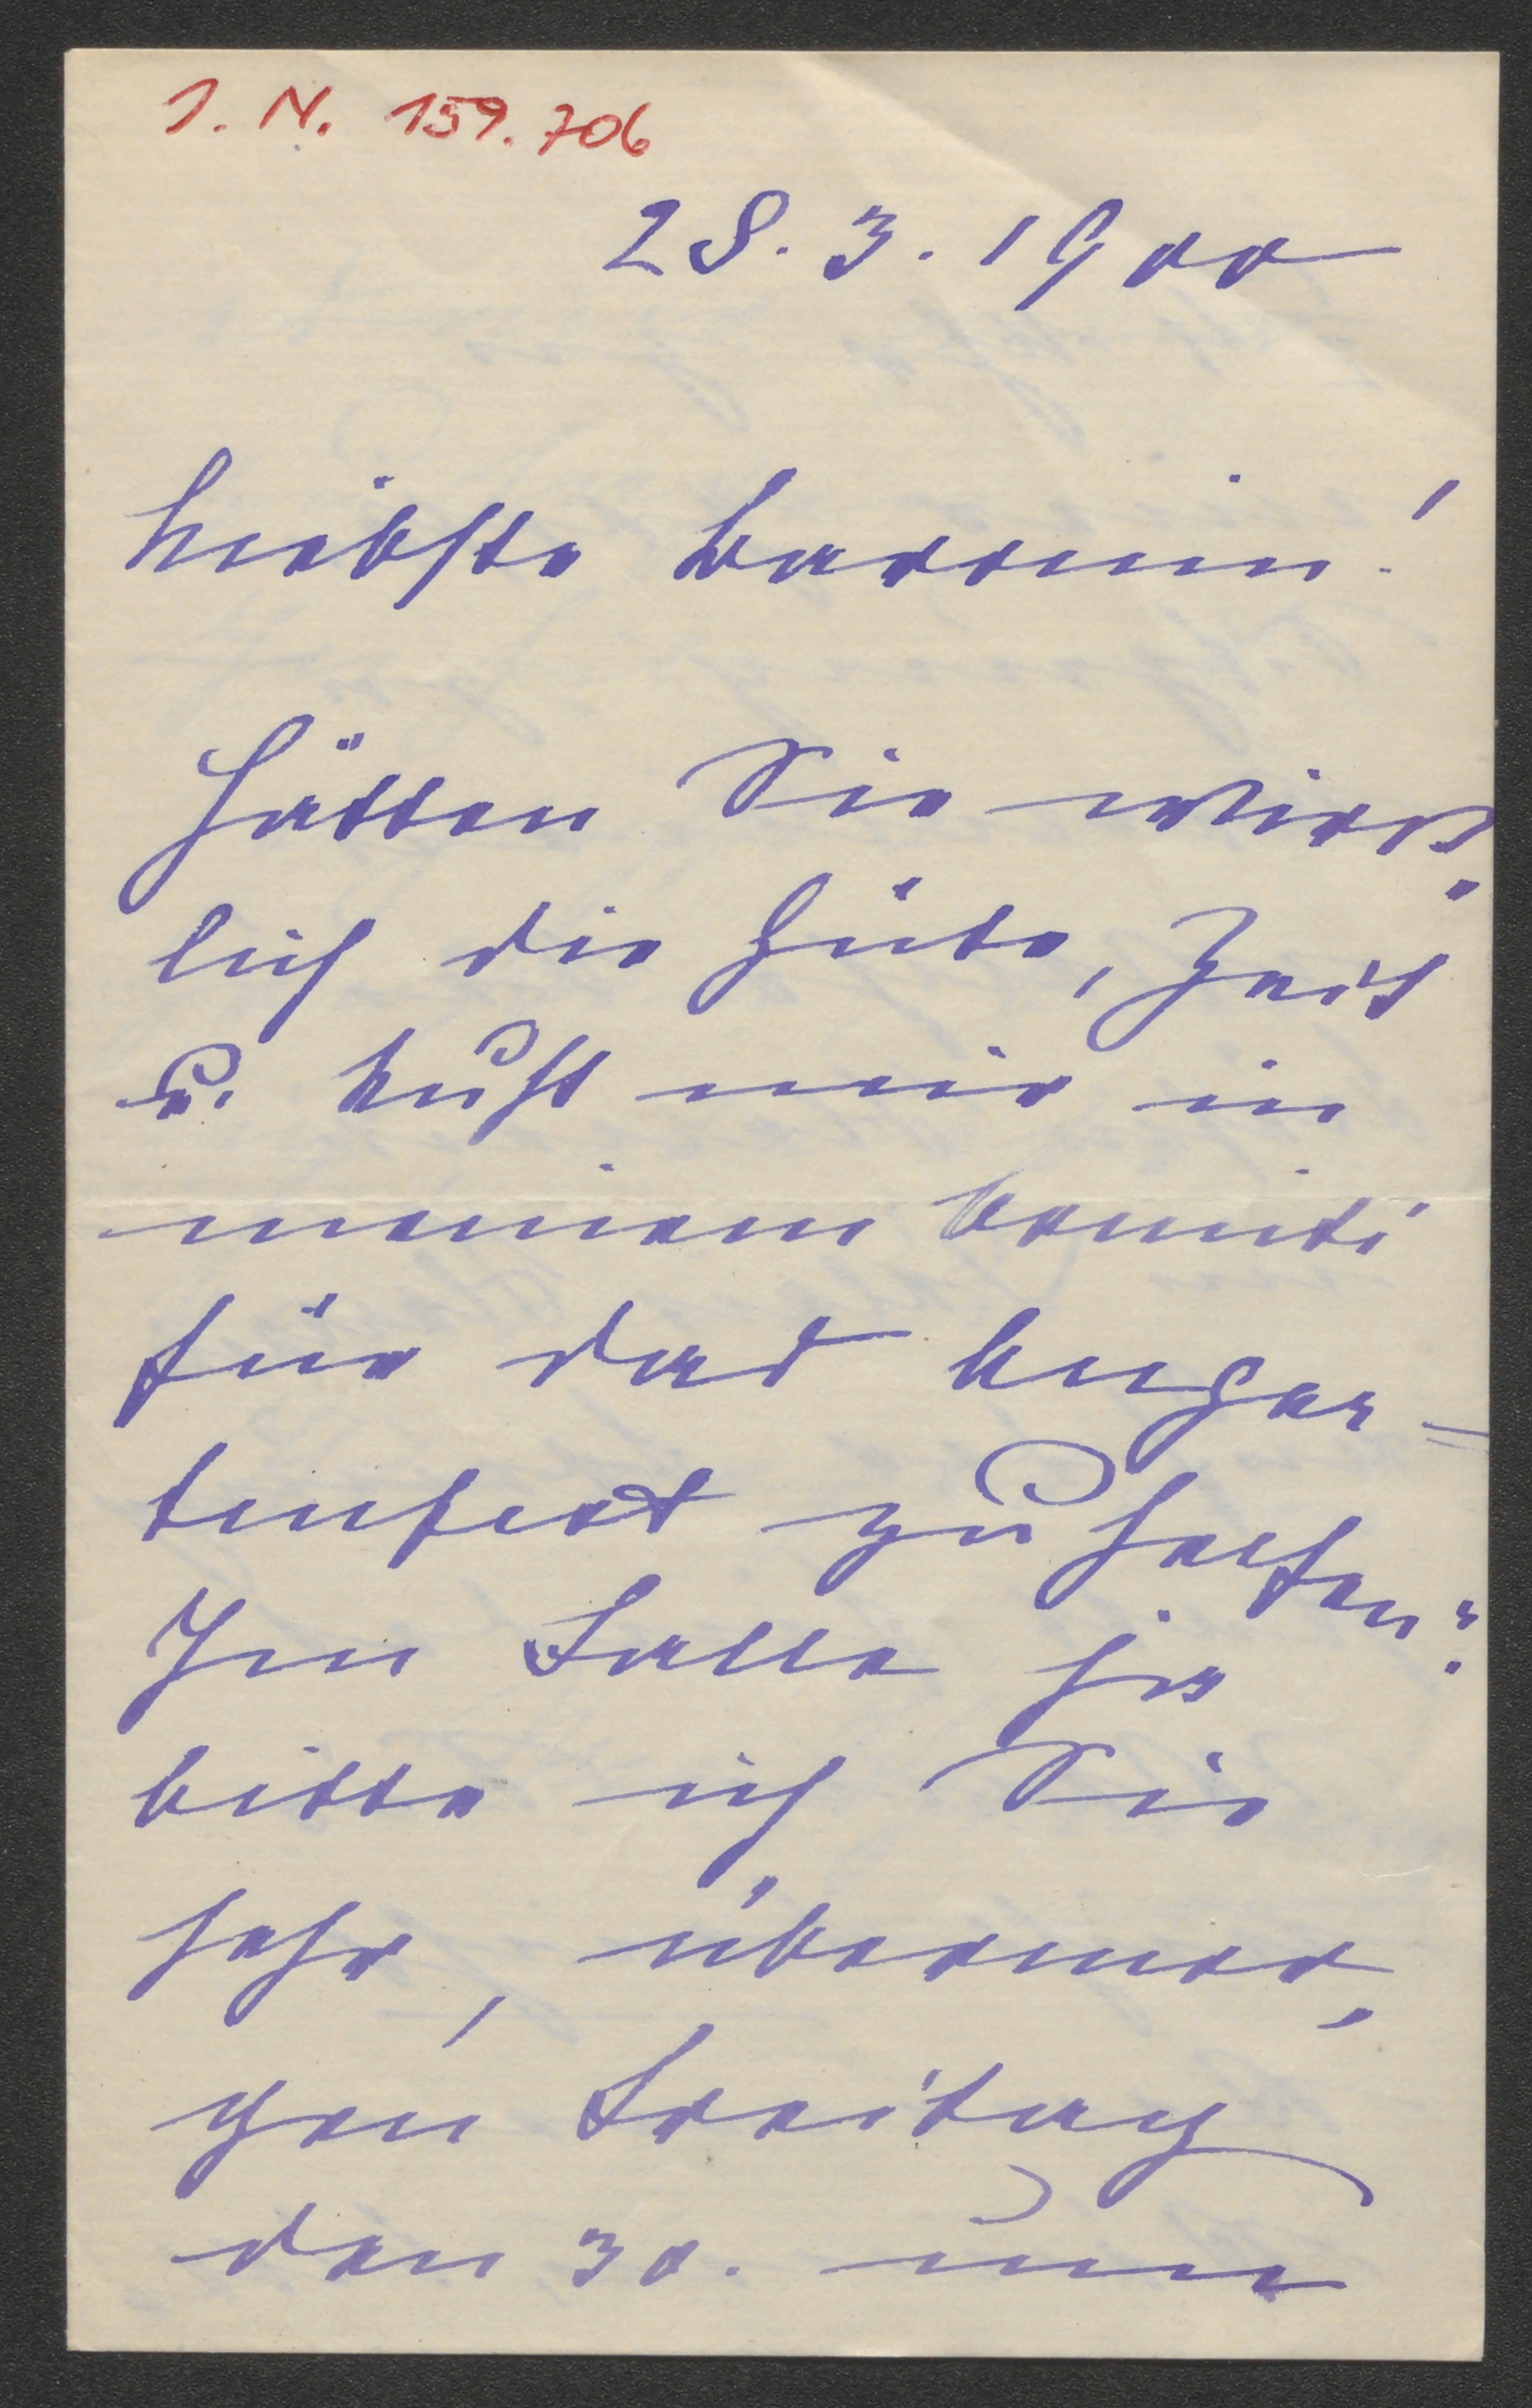 I. N. 159.706
28. 3. 1900
Liebste Baronin!
Hätten Sie wirk-
lich die Güte, Zeit
u. Lust mir in
meinem Comité
für das Augar=
tenfest zu helfen?
Im Falle ja
bitte ich Sie
sehr, übermor-
gen Freitag
den 30. um